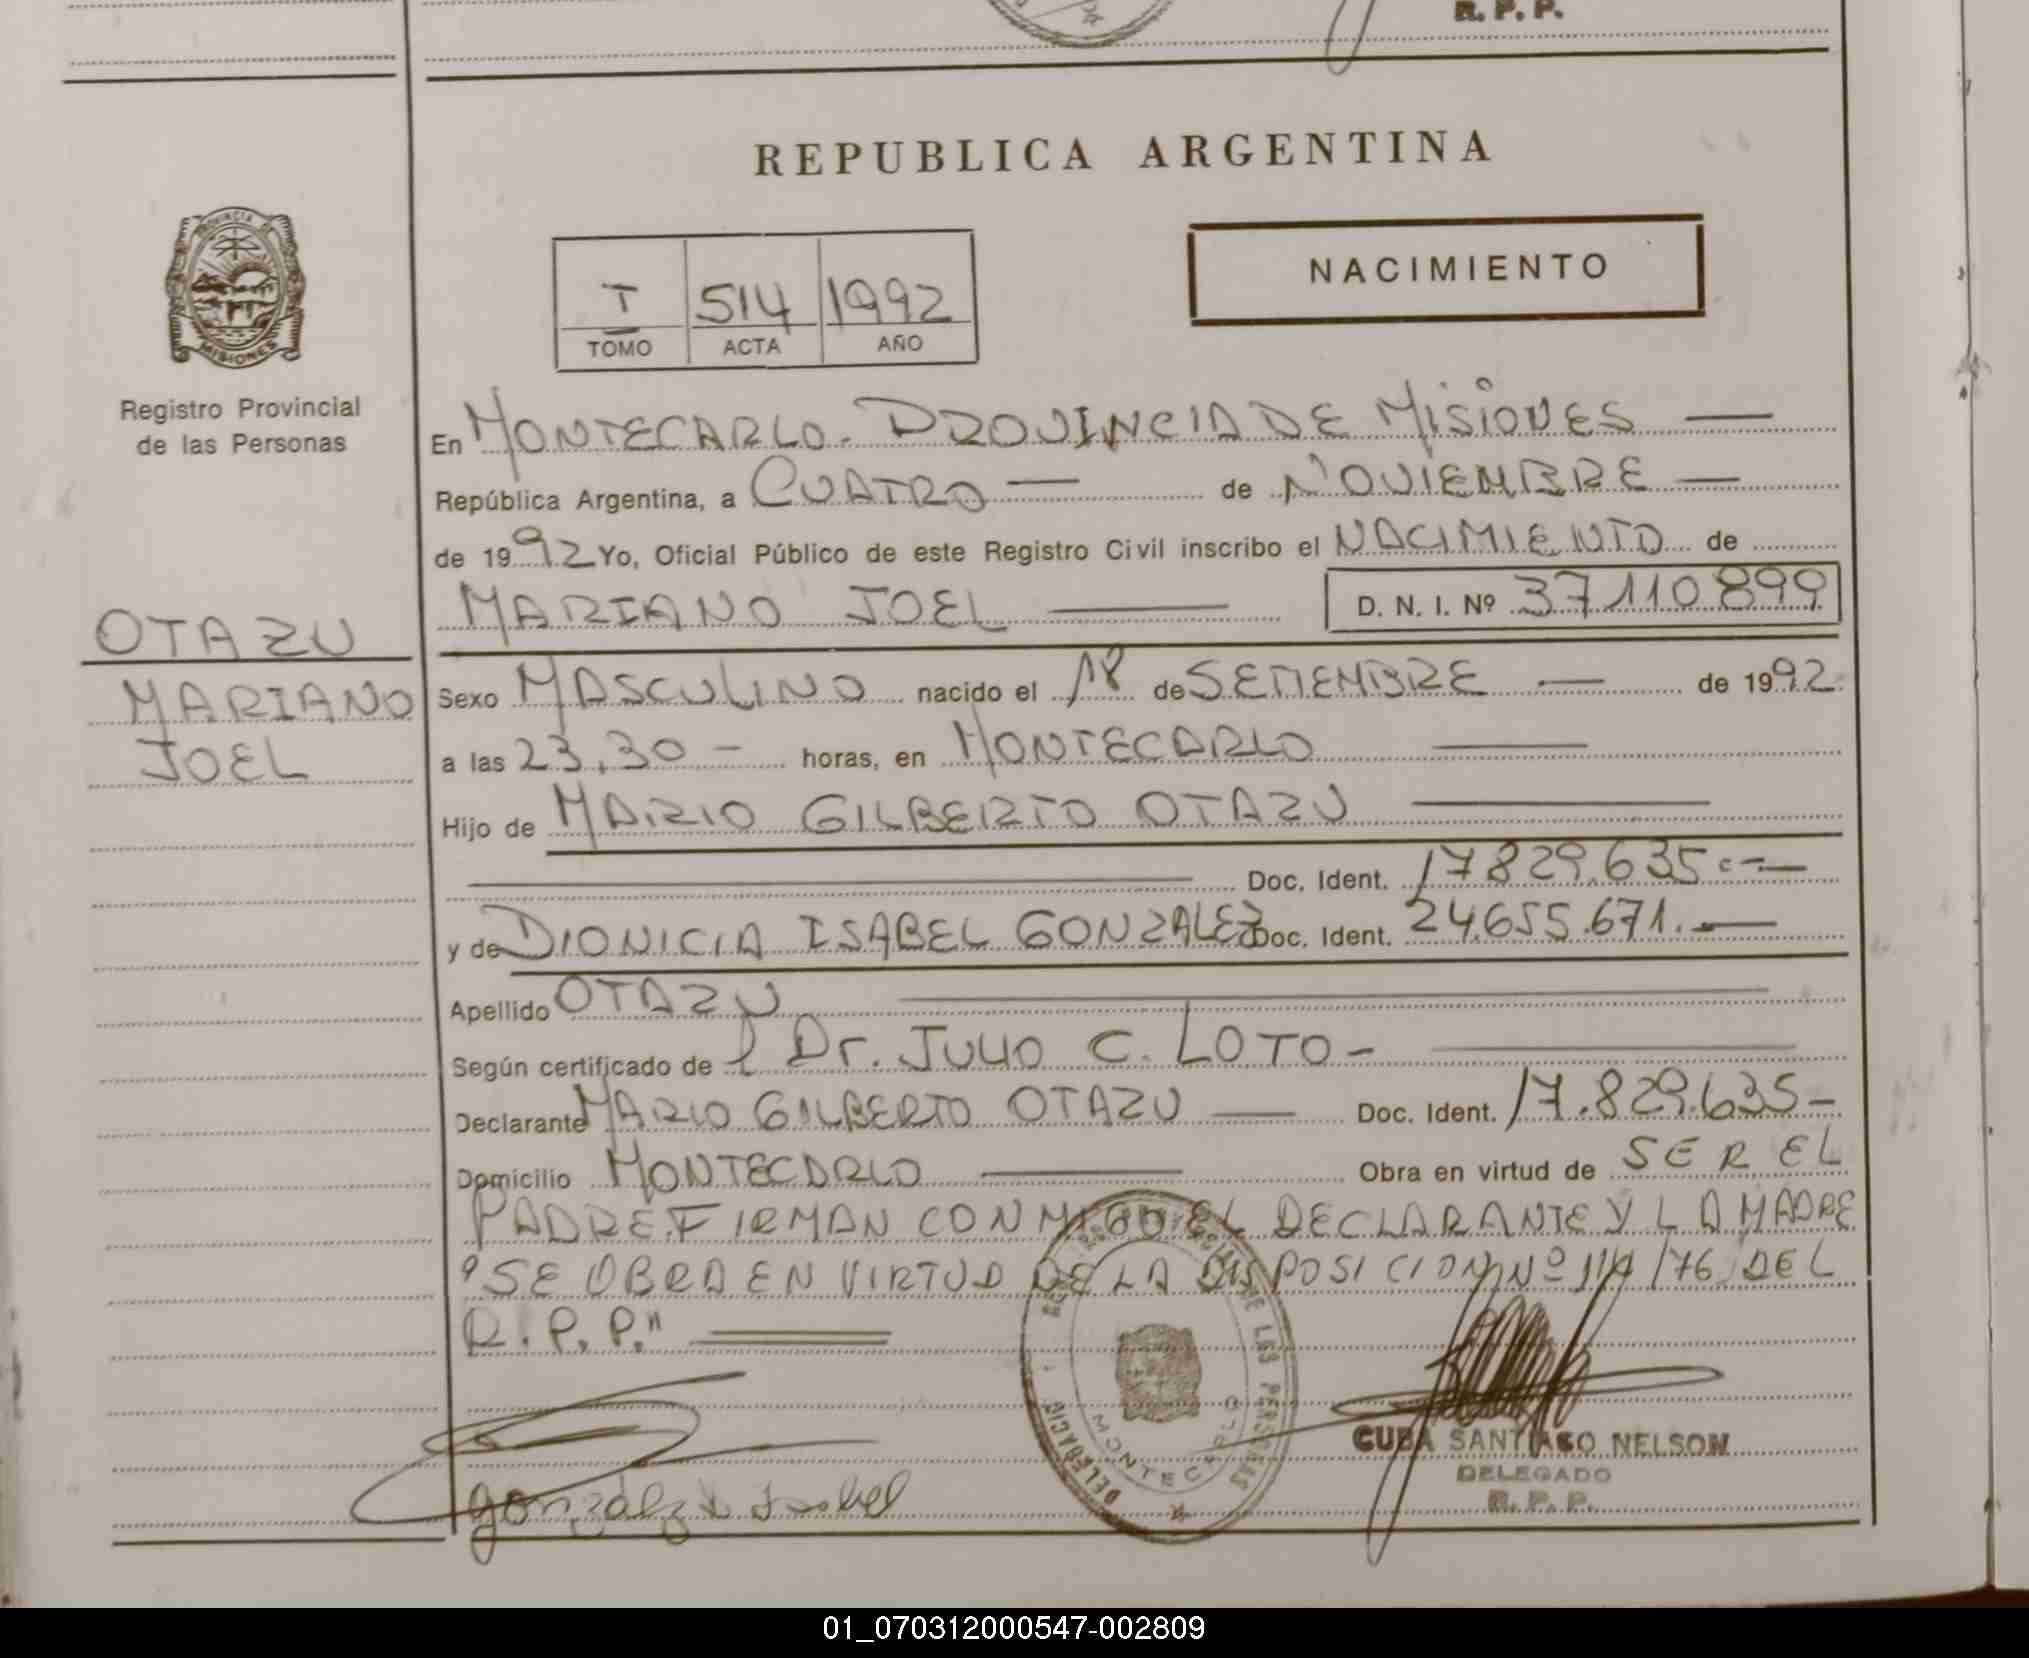 R. P. P.
REPUBLICA ARGENTINA
PROVINCIA
MISIONES
Registro Provincial
de las Personas
T 514 1992
TOMO ACTA AÑO
NACIMIENTO
En MONTECARLO. PROVINCIA DE MISIONES
República Argentina, a CUATRO de NOVIEMBRE
de 1992 Yo, Oficial Público de este Registro Civil inscribo el NACIMIENTO de
MARIANO JOEL D. N. I. Nº 37110899
OTAZU
MARIANO
JOEL
Sexo MASCULINO nacido el 18 de SETIEMBRE de 1992
a las 23,30 - horas, en MONTECARLO
Hijo de MARIO GILBERTO OTAZU
Doc. Ident. 17829.635
y de DIONICIA ISABEL GONZALEZ Doc. Ident. 24.655.671.
Apellido OTAZU
Según certificado de l Dr. JULIO C. LOTO -
Declarante MARIO GILBERTO OTAZU Doc. Ident. 17.829.635-
Domicilio MONTECARLO Obra en virtud de SER EL
PADRE. FIRMAN CONMIGO EL DECLARANTE Y LA MADRE
"SE OBRA EN VIRTUD DE LA DISPOSICION Nº 114/76 DEL
R.P.P."
DE LAS PERSONAS
DELEGACIA
MONTECARLO
CUBA SANTIAGO NELSON
DELEGADO
R. P. P.
gonzalez Isabel
01_070312000547-002809